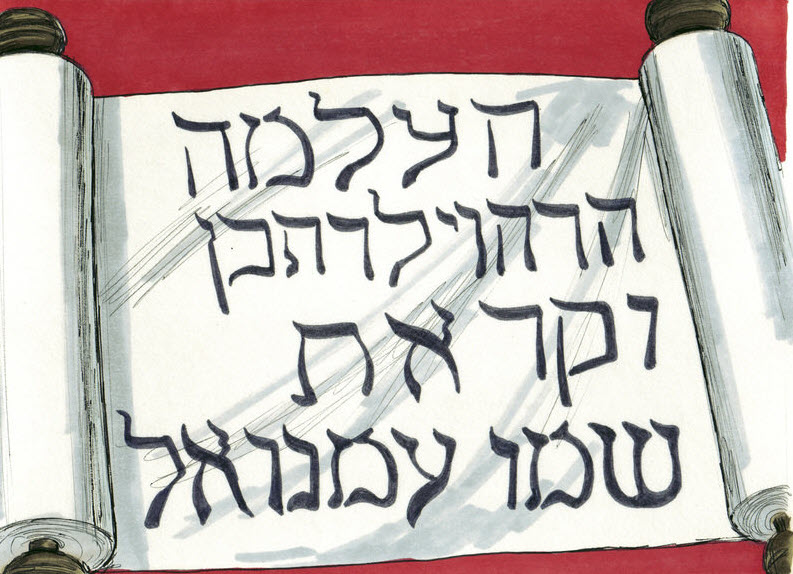 העלמה
הרהוילדתבן
וקראת
שמו עמנואל